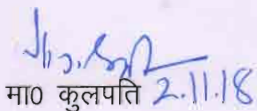 मा0 कुलपति 2.11.18